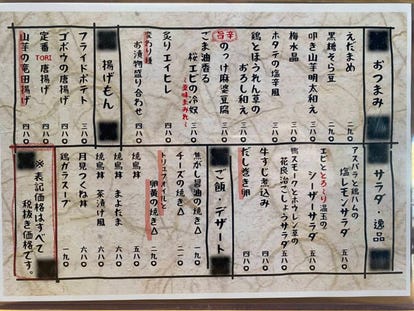 おつまみ
えだまめ 二九〇
黒糖そら豆 二九〇
叩き山芋明太和え 三八〇
梅水晶 三八〇
ホタテの塩辛風 三八〇
鶏とほうれん草の
おろし和え 三八〇
旨辛
のっけ麻婆豆腐 四八〇
ごま油香る
桜エビの冷奴 三八〇
薬味まみれ〜
炙りエイヒレ 四八〇
変わり種
お漬物盛り合わせ 四八〇
揚げもん
フライドポテト 三八〇
ゴボウの唐揚げ 四八〇
定番TORI唐揚げ 四八〇
山芋の竜田揚げ 四八〇
サラダ・逸品
アスパラと鶏ハムの
塩レモンサラダ 五八〇
エビととろ〜り温玉の
シーザーサラダ 五八〇
鴨スモークとホウレン草の
花良治ごしょうサラダ 五八〇
牛すじ煮込み 四八〇
だし巻き卵 四八〇
ご飯・デザート
焦がし醤油の焼き△ 一九〇
チーズの焼き△ 二一〇
トリュフオイルと
卵黄の焼き△ 二九〇
焼鳥丼 五八〇
焼鳥丼 まよだま 六八〇
焼鳥丼 茶漬け風 六八〇
月見つくね丼 六八〇
鶏ガラスープ 一九〇
※表記価格はすべて
税抜き価格です。